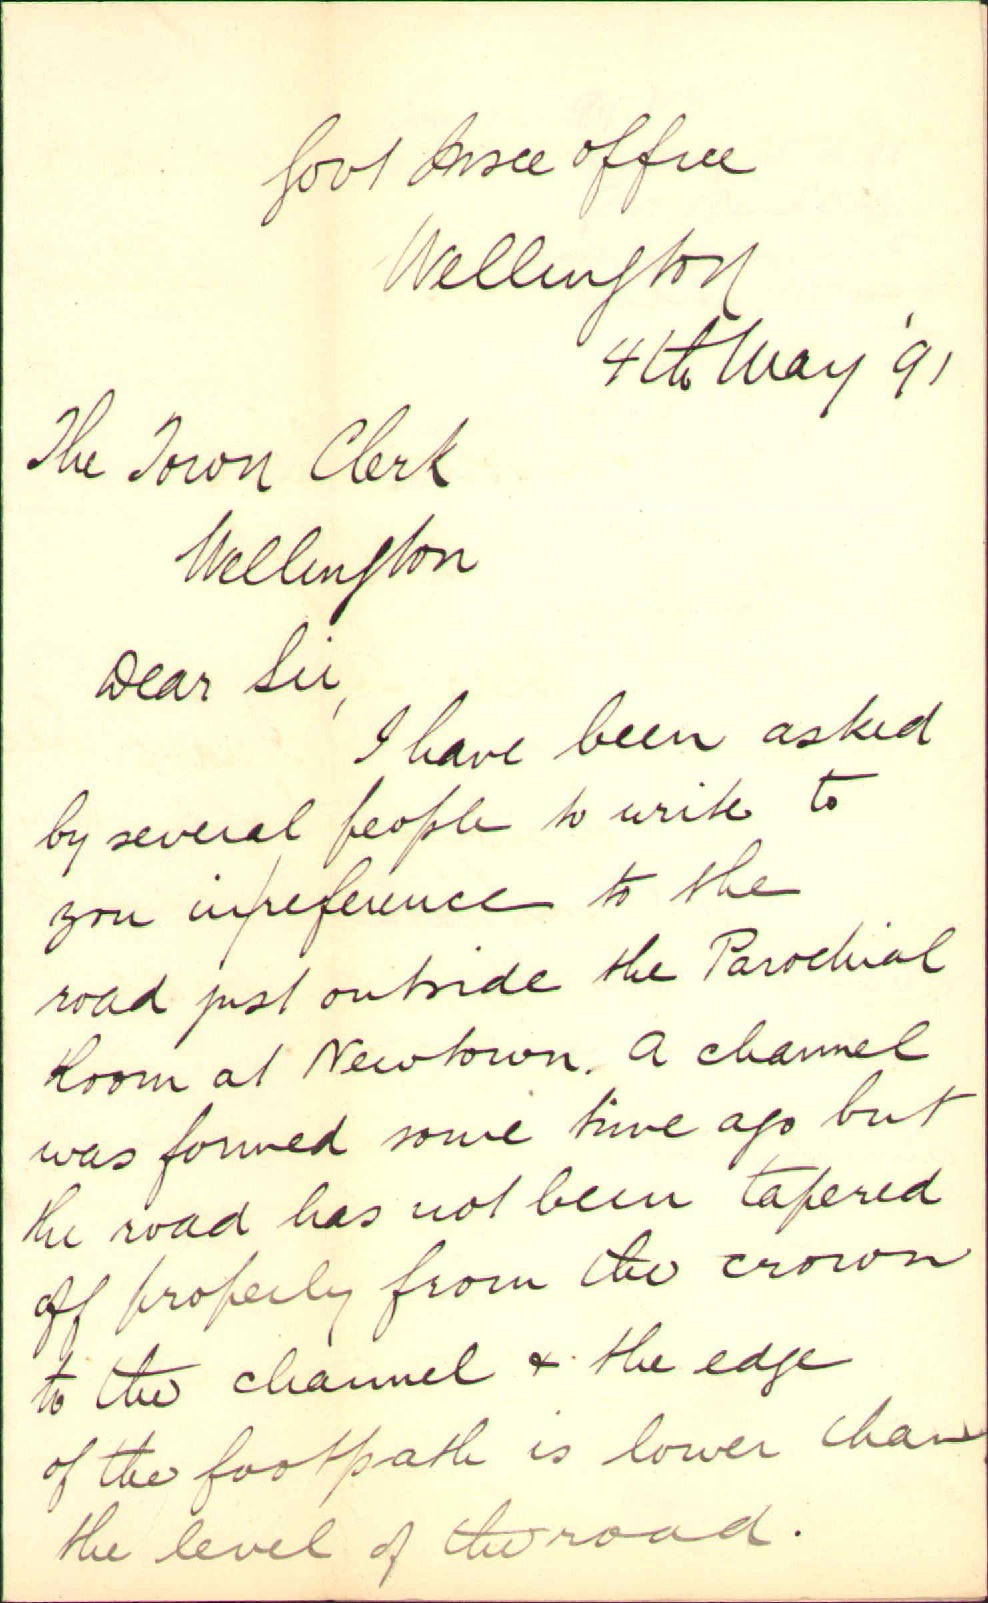 Govt Insce Office
Wellington
4th May '91
The Town Clerk
Wellington
Dear Sir,
I have been asked
by several people to write to
you in/reference to the
road just outside the Parochial
Room at Newtown. A channel
was formed some time ago but
the road has not been tapered
off properly from the crown
to the channel & the edge
of the footpath is lower than
the level of the road.